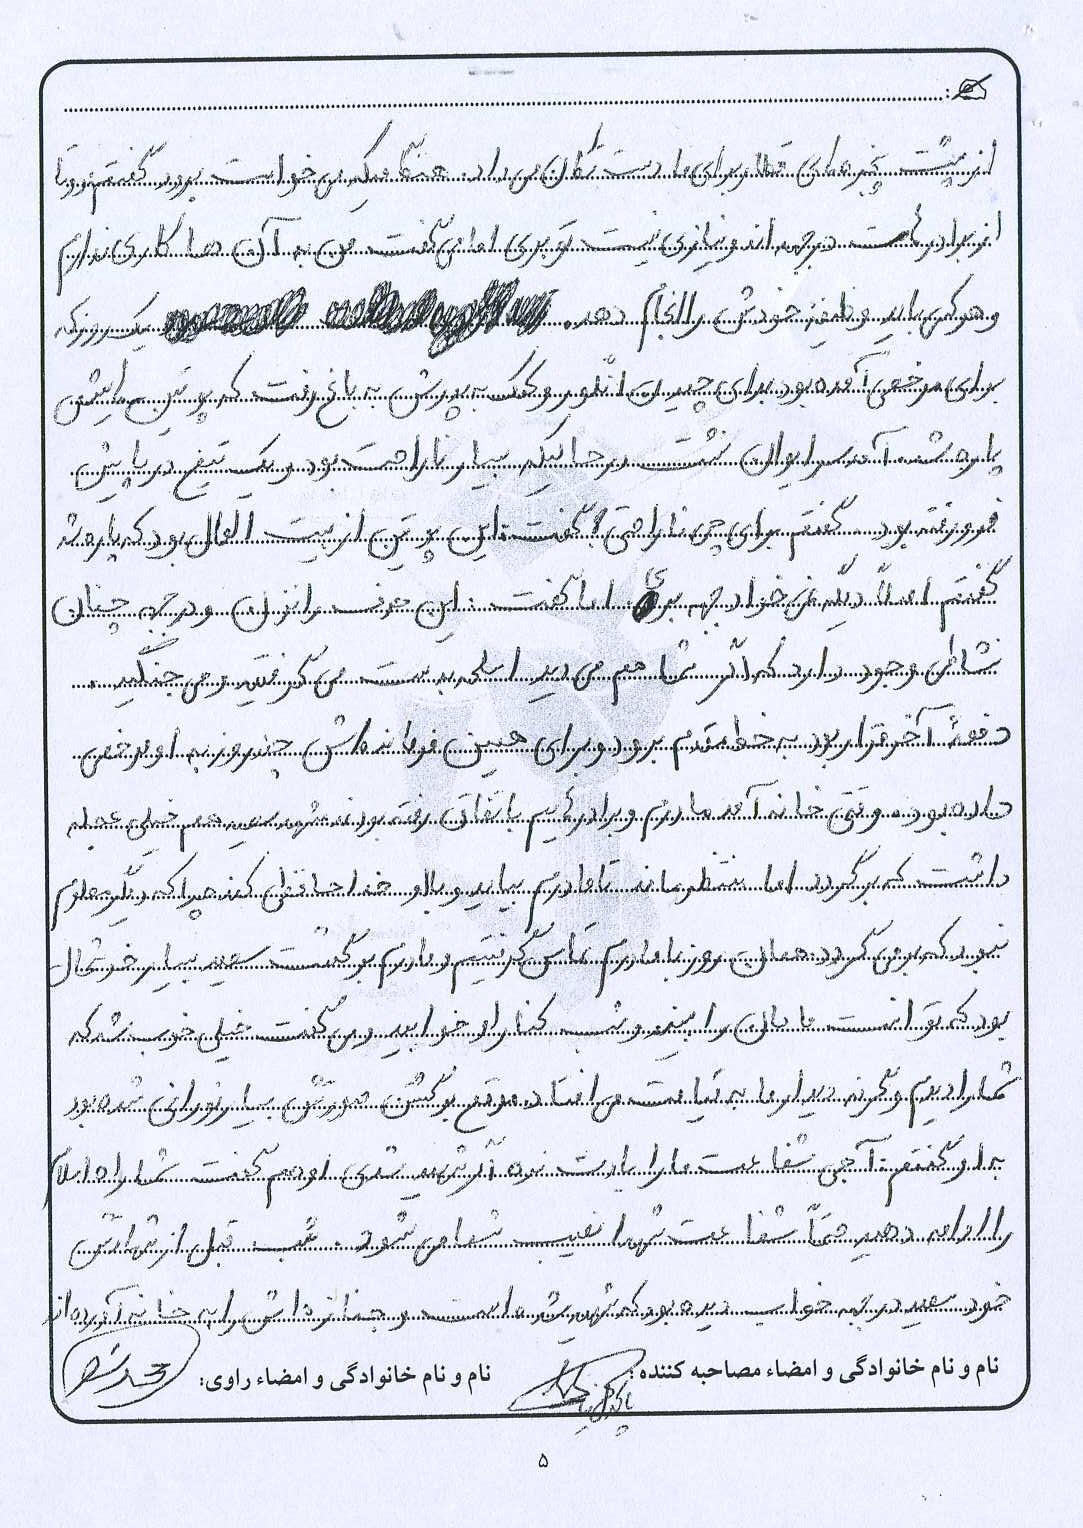 از پشت پنجره‌های قطار برای ما دست تکان می‌داد. هنگامیکه می‌خواست برود گفتم دو تا
از برادرهات در جبهه اند و نیازی نیست تو بری اما می‌گفت من به آن ها کاری ندارم
و هر کس باید وظیفه خودش را انجام دهد. یک روز که
برای مرخصی آمده بود برای چیدن انگور و کمک به پدرش به باغ رفت که پوتین هایش
پاره شد. آمد سر ایوان نشست در حالیکه بسیار ناراحت بود و یک تیغ در پایش
فرو رفته بود. گفتم برای چی ناراحتی؟ گفت: این پوتین از بیت المال بود که پاره شد
گفتم اصلاً دیگه نمی‌خواد جبهه بری. اما گفت: این حرف را نزن و در جبهه چنان
نشاطی وجود دارد که اگر شما هم می‌دید اسلحه به دست می‌گرفتید و می‌جنگید.
دفعهٔ آخر قرار بود به خط مقدم برود و برای همین فرمانده‌اش چند روز به او مرخصی
داده بود. وقتی خانه آمد مادرم و برادرهایم باتفاق رفته بودند شهید سعید هم خیلی عجله
داشت که برگردد اما منتظر ماند تا مادرم بیاید و با او خداحافظی کند چرا که دیگر معلوم
نبود که برمی‌گردد. همان روز با مادرم تماس گرفتیم و مادرم برگشت سعید بسیار خوشحال
بود که توانست مامان را ببیند و شب کنار او خوابید و می‌گفت خیلی خوب شد که
شما را دیدم وگرنه دیدار ما به قیامت می‌افتاد. موقع برگشتن صورتش بسیار نورانی شده بود
به او گفتم: آجی شفاعت ما را یادت نره اگر شهید شدی او هم گفت شما راه اسلام
را ادامه دهید حتماً شفاعت شهدا نصیب شما می‌شود. شب قبل از شهادتش
خود سعید در جبهه خواب دیده بود که شهید شده است و جنازه‌اش را به خانه آورده‌اند
نام و نام خانوادگی و امضاء مصاحبه کننده: نام و نام خانوادگی و امضاء راوی:
۵